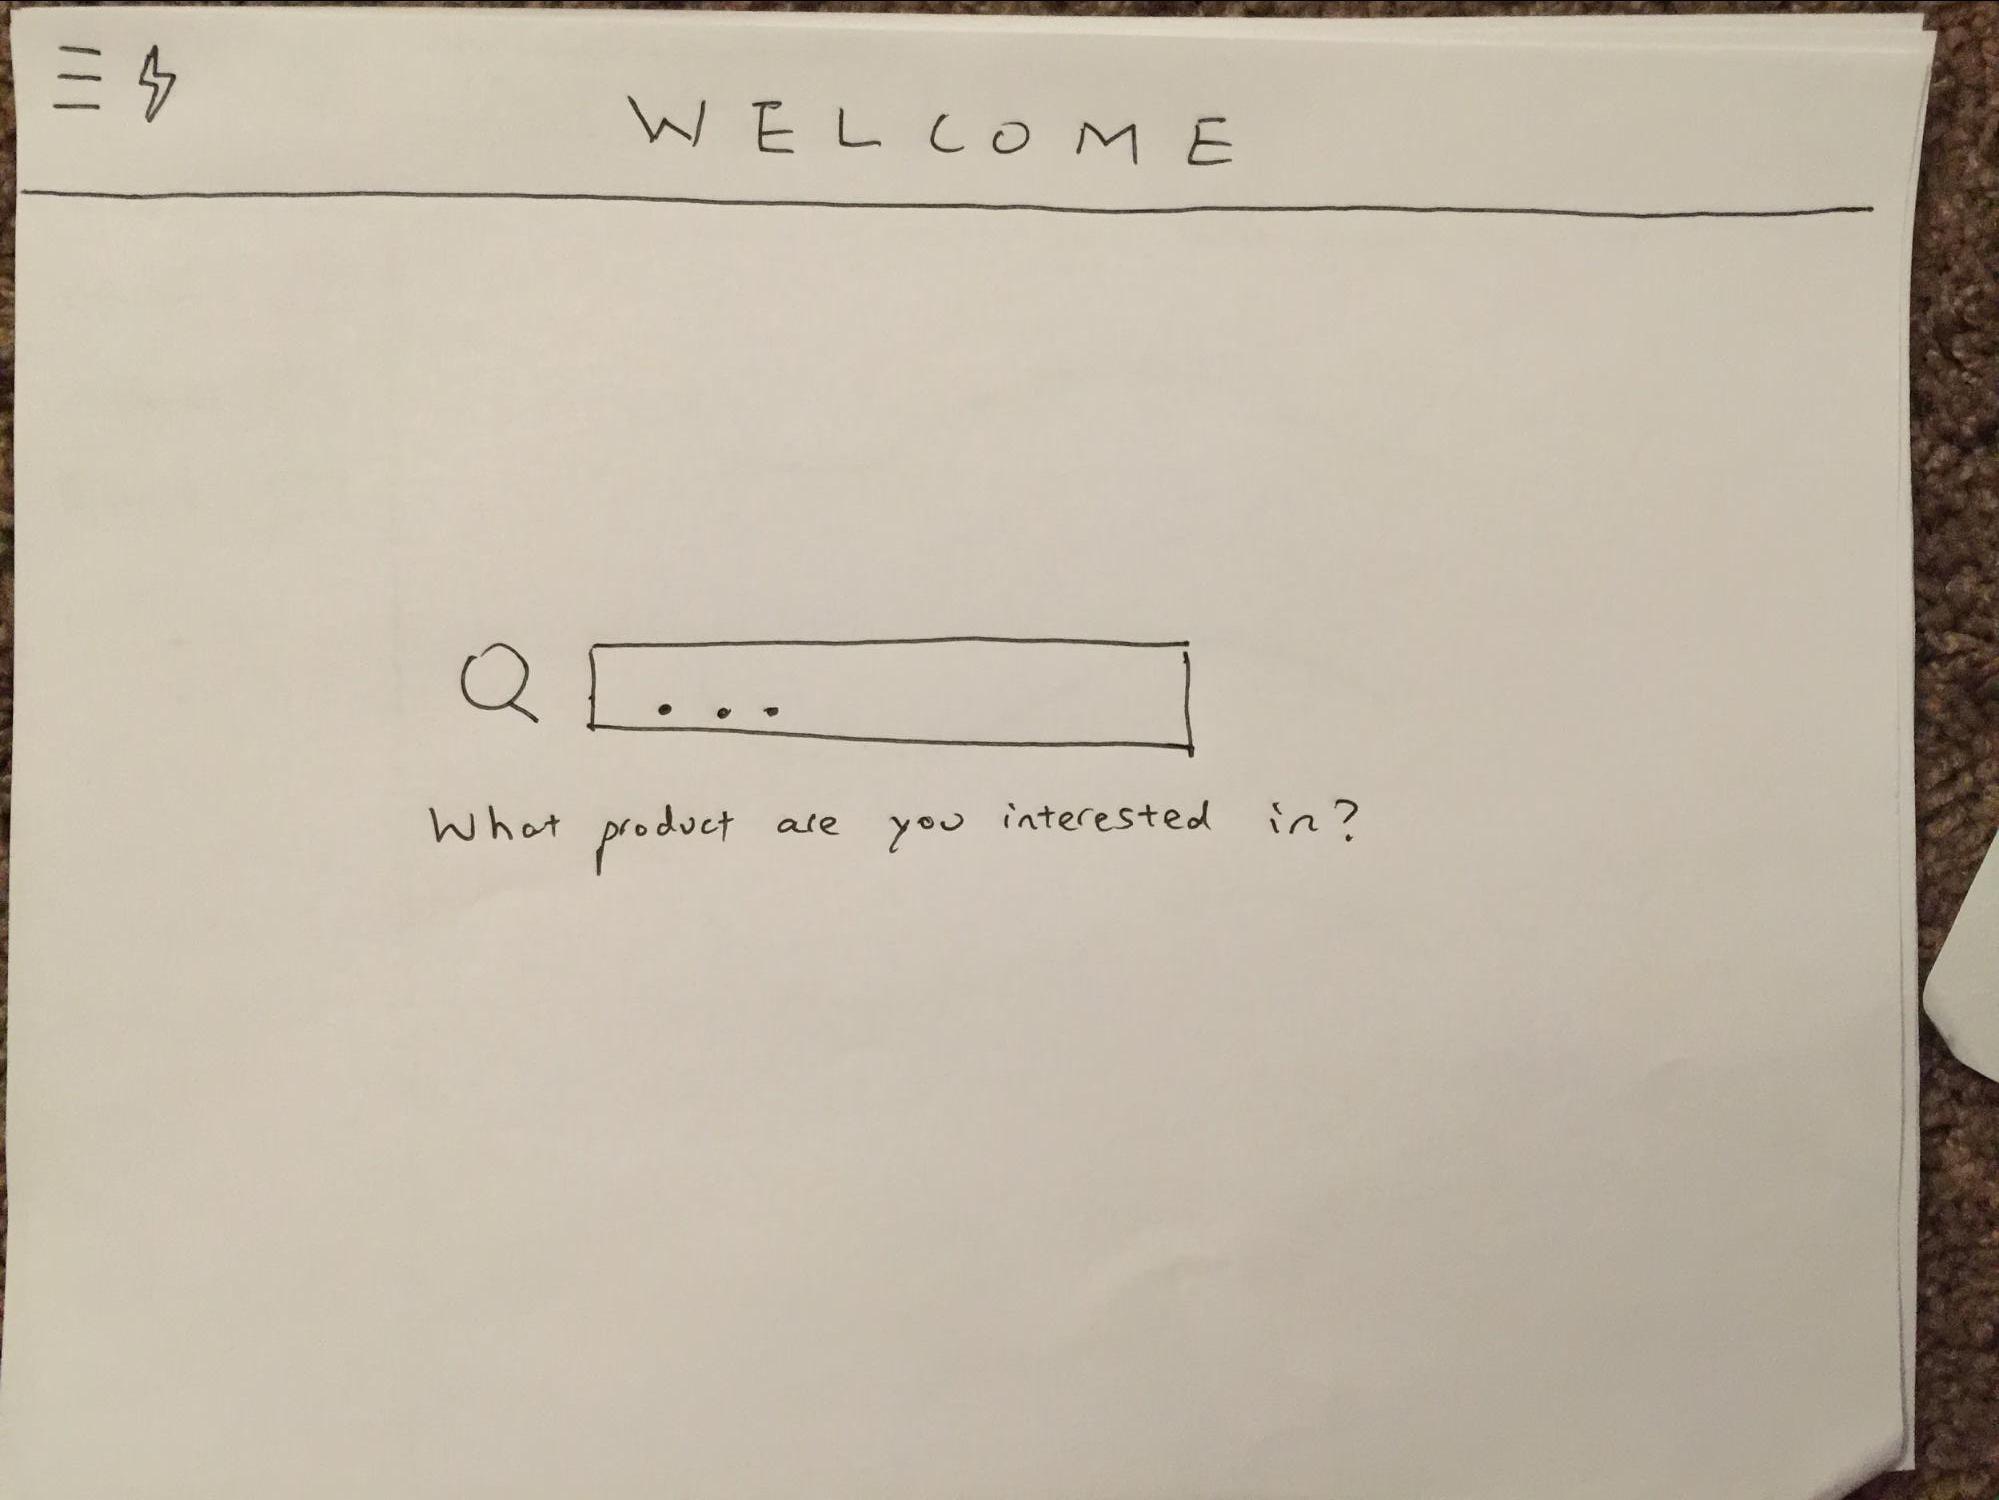 WELCOME
...
What product are you interested in?